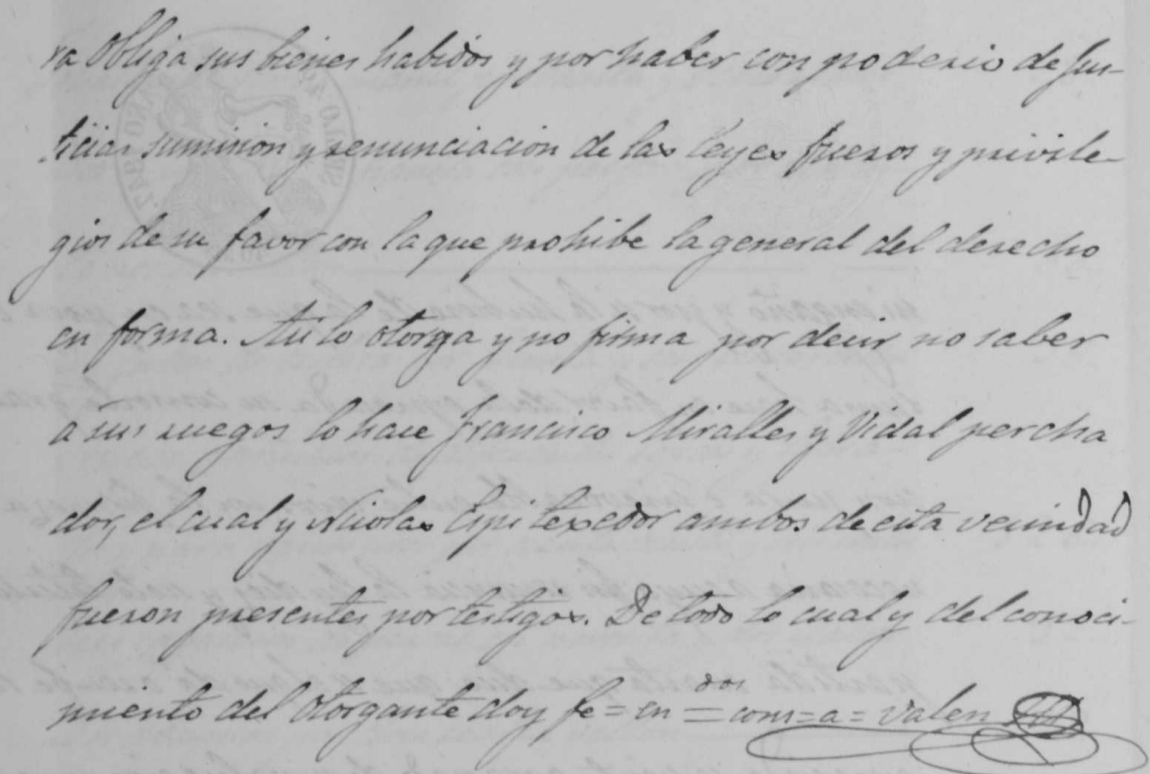 ra Obliga sus bienes habidos y por haber con poderio de Jus-
ticias sumision y renunciacion de las leyes fueros y privile-
gios de su favor con la que prohibe la general del derecho
en forma. Asi lo otorga y no firma por decir no saber
a sus ruegos lo hace Francisco Miralles y Vidal percha
dor, el cual y Nicolas Espi texedor ambos de esta vecindad
fueron presentes por testigos. De todo lo cual y del conoci-
miento del Otorgante doy fe = en = dos = com = a = valen